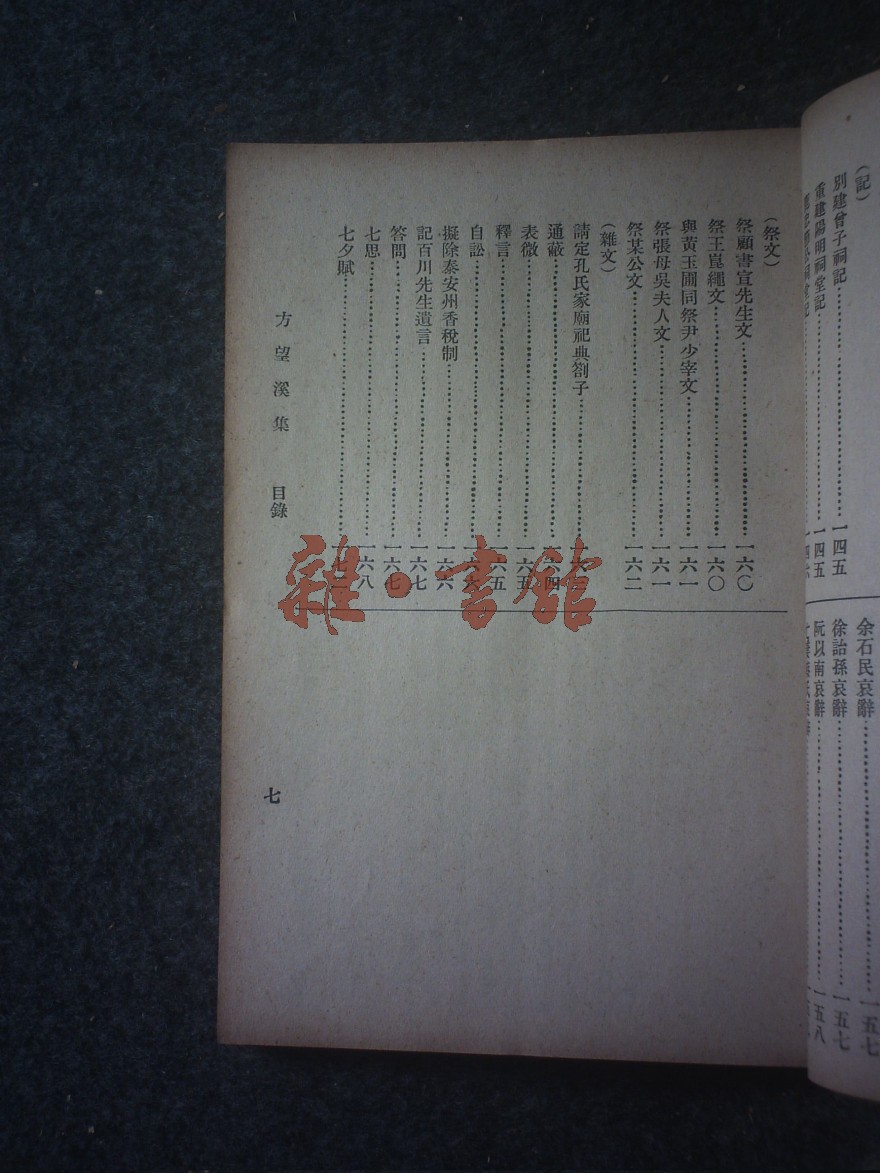 (記)
別建曾子祠記 一四五
重建陽明祠堂記 一四五
余石民哀辭 一五七
徐詒孫哀辭 一五七
阮以南哀辭 一五八
(祭文)
祭顧書宣先生文 一六〇
祭王崑繩文 一六〇
與黃玉圃同祭尹少宰文 一六一
祭張母吳夫人文 一六一
祭某公文 一六二
(雜文)
請定孔氏家廟祀典劄子
通蔽 一六四
表微 一六五
釋言 一六五
自訟
擬除泰安州香稅制 一六六
記百川先生遺言 一六七
答問 一六七
七思 一六八
七夕賦
方望溪集 目錄
七
雜·書館